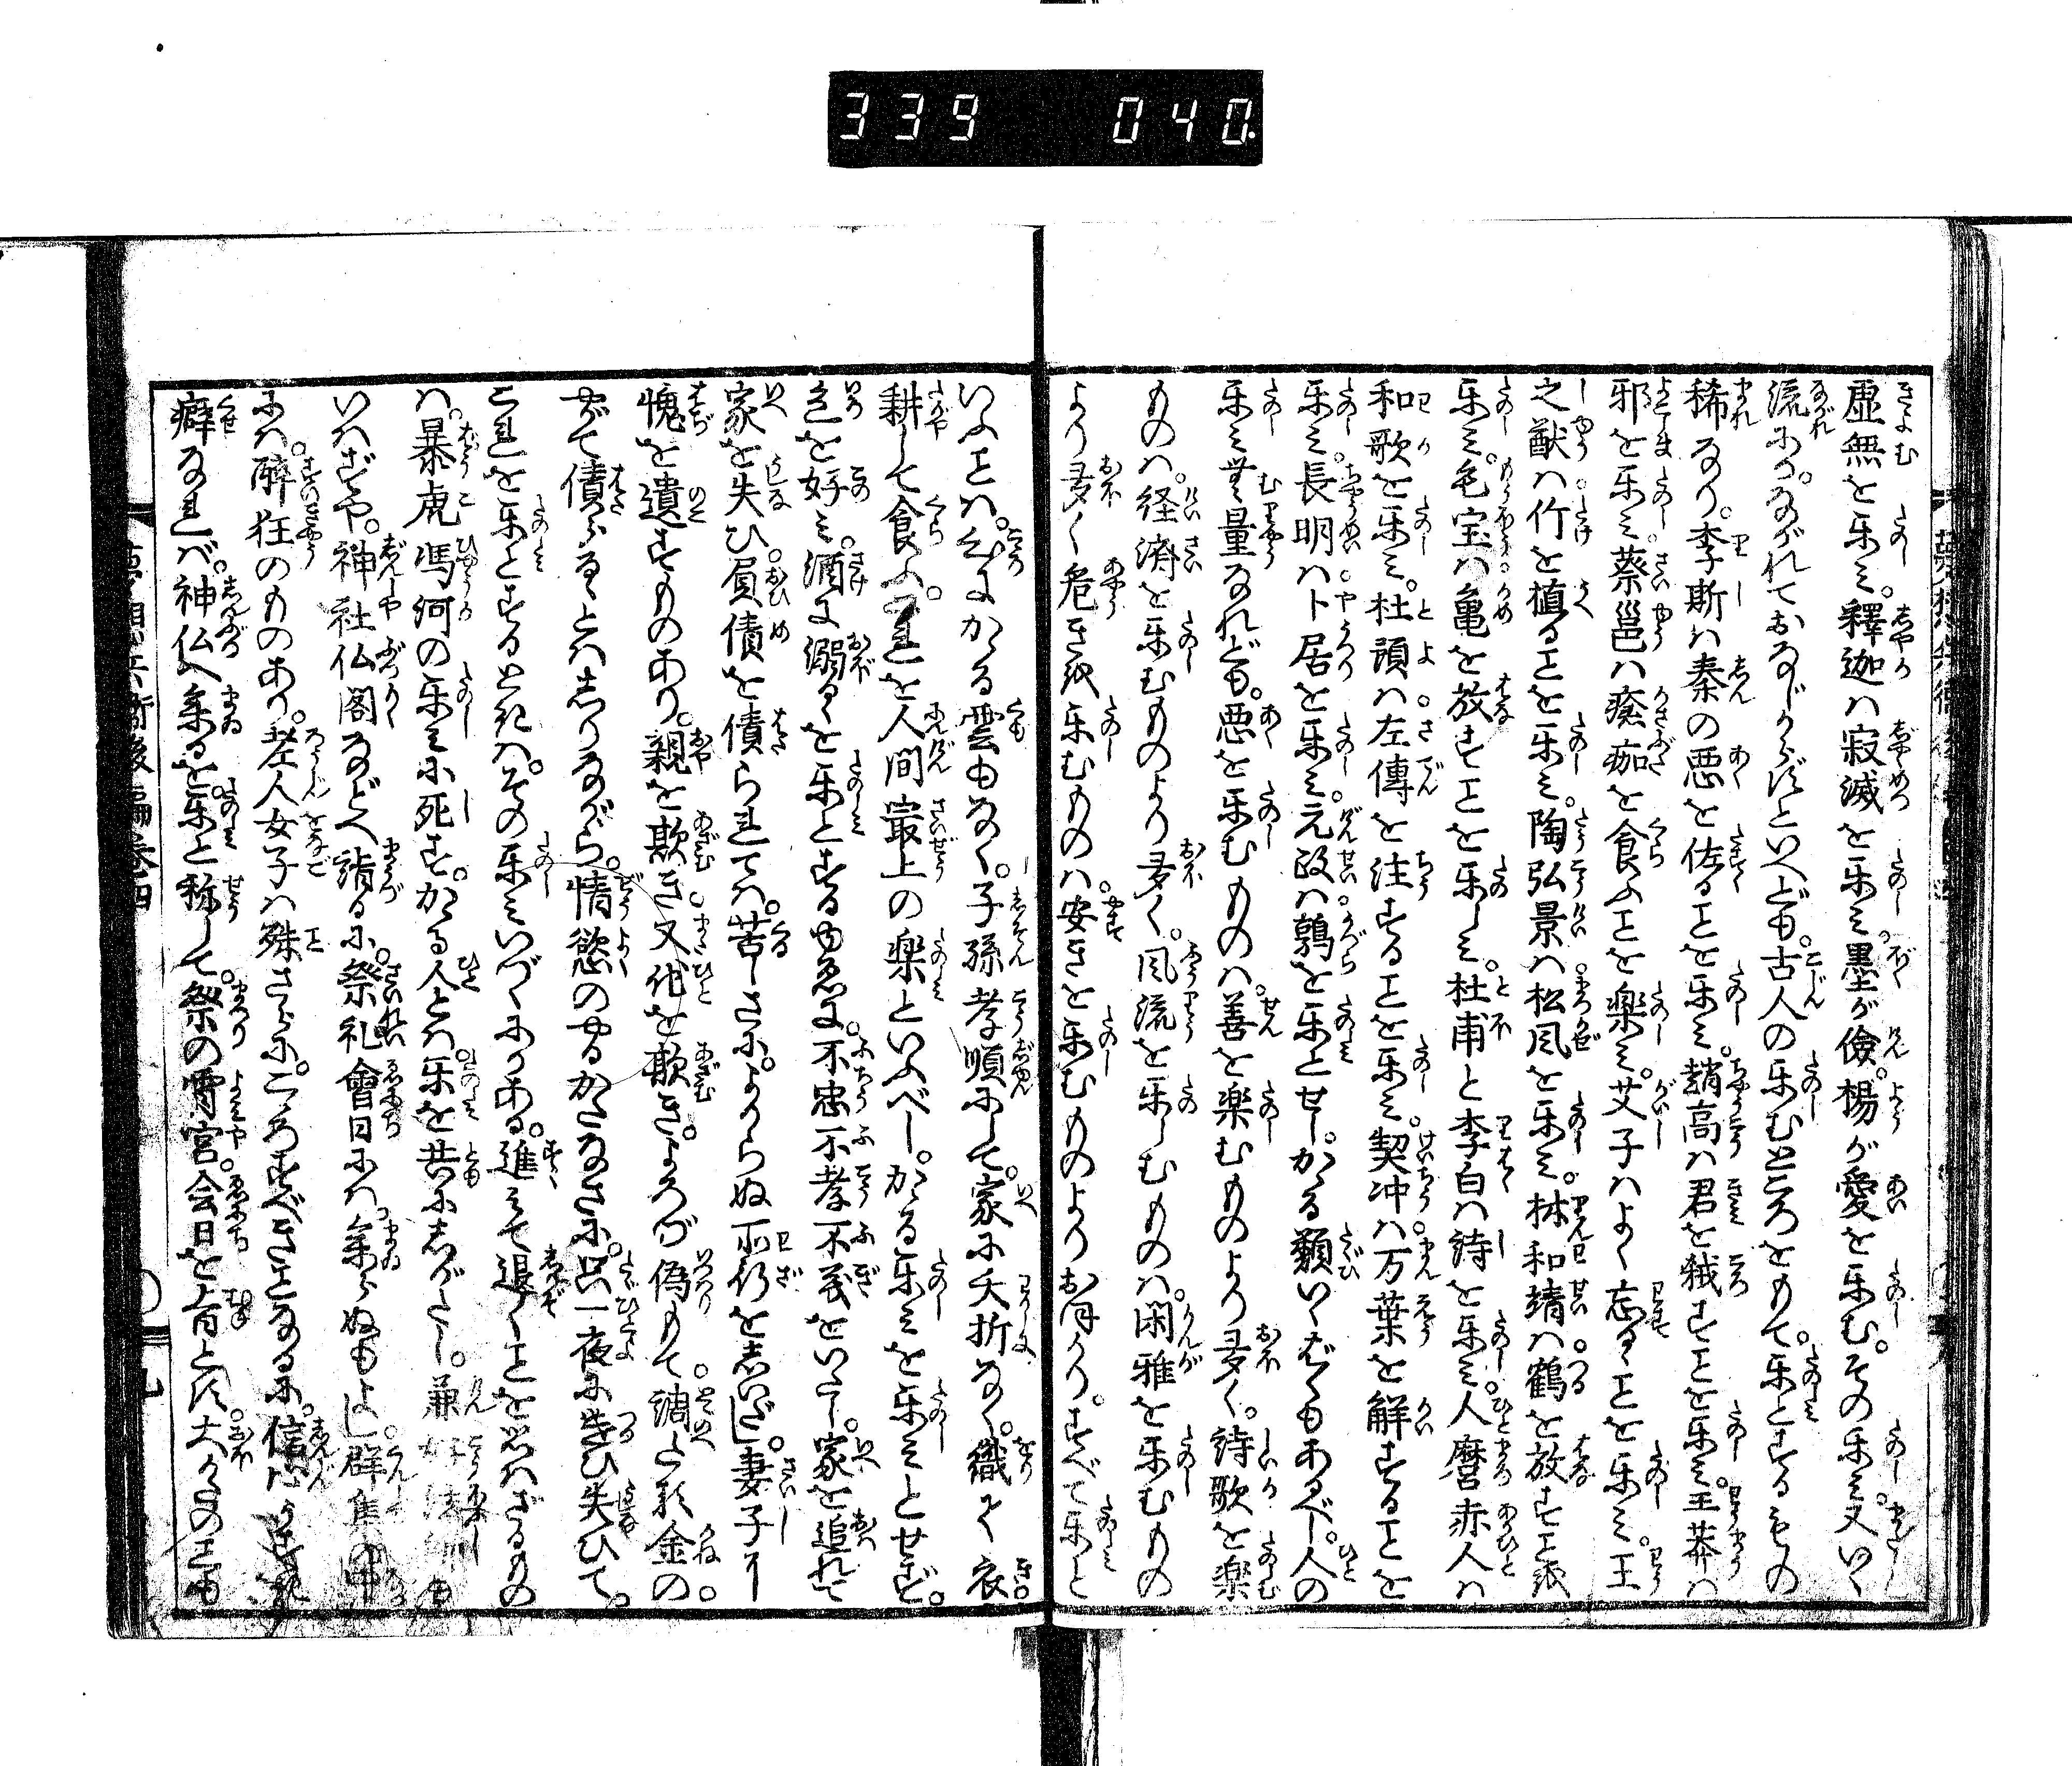 339 040
虚無を楽み。釋迦ハ寂滅を楽ミ。墨が儉。楊が愛を楽む。その楽ミ。又いく
流にか。ながれておなじからずといへども。古人の楽むところをもて。楽とするもの
稀なり。李斯ハ秦の悪を佐ることを楽ミ。趙高ハ君を弑すことを楽ミ。王莽ハ
邪を楽ミ。蔡邕ハ瘡痂を食ふことを楽ミ。艾子ハよく忘るゝことを楽ミ。王
之猷ハ竹を植ることを楽ミ。陶弘景ハ松風を楽ミ。林和靖ハ鶴を放すことを
楽ミ。毛宝ハ亀を放すことを楽しミ。杜甫と李白ハ詩を楽ミ。人麿赤人ハ
和歌を楽ミ。杜預ハ左傳を注することを楽ミ。契冲ハ万葉を解することを
楽ミ。長明ハト居を楽ミ。元政ハ鶉を楽とせし。かゝる類いくばくもあるべし。人の
楽ミ無量なれども。悪を楽むものハ。善を楽むものより多く。詩歌を楽
ものハ。経済を楽むものより多く。風流を楽しむものハ。閑雅を楽むもの
より多く危きを楽むものハ。安きを楽むものよりおほかり。すべて楽と
いふことハ。心にかゝる雲もなく。子孫孝順にして。家に夭折なく。織て衣
耕して食ふ。これを人間最上の楽といふべし。かゝる楽ミを楽ミとせず。
色を好ミ。酒に溺るゝを楽とするゆゑに。不忠不孝不義をいたし。家を追れて
家を失ひ。屓債を債られてハ。苦しさに。よからぬ所行を志いだし。妻子に
愧を遺すものあり。親を欺き。又他を欺き。よろづ偽もて。調たる金の。
やがて債らるゝとハしりながら。情慾のやるかたなさに。只一夜に失ひて。
これを楽とするときハ。その楽ミいづくにかある。進ミて退くことを思ハざるもの
ハ。暴虎馮河の楽ミに死す。かゝる人とハ。楽を共にしがたし。兼好法師も
いハずや。神社仏閣などへ詣るに。祭礼會日にハ。参らぬもよし。群集の中
にハ。酔狂のものあり。老人女子ハ殊さらに。こゝろすべきことなるに。信心
癖なれバ。神仏へ参るを。楽と称して。祭の宵宮。会日を旨とす。大かたの事も